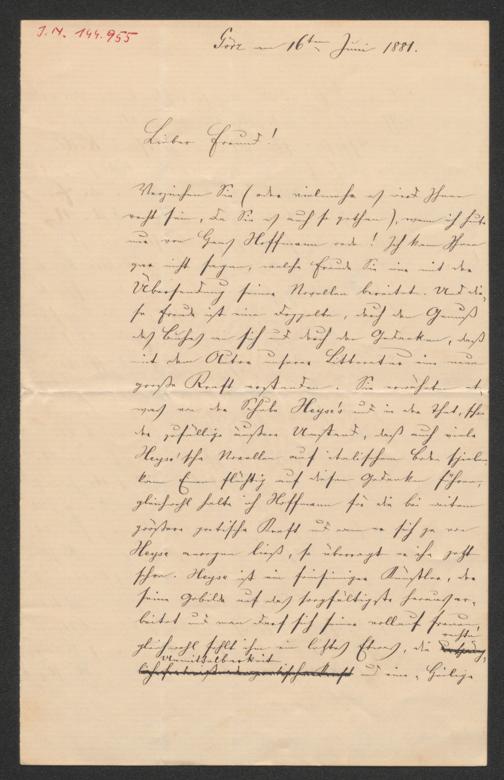 I. N. 144.955
Görz am 16ten Juni 1881.
Lieber Freund!
Verzeihen Sie (oder vielmehr es wird Ihnen
recht sein, da Sie es auch so gethan), wenn ich heute
nur von Hans Hoffmann rede! Ich kann Ihnen
gar nicht sagen, welche Freude Sie mir mit der
Übersendung seiner Novellen bereitet. Und die-
se Freude ist eine doppelte, durch den Genuß
des Buches an sich und durch den Gedanken, daß
mit dem Autor unserer Litteratur eine neue
große Kraft erstanden. Sie erwähnten et-
was von der Schule Heyse's und in der That, schon
der zufällige äußere Umstand, daß auch viele
Heyse'sche Novellen auf italischem Boden spielen
kann Einen flüchtig auf diesen Gedanken führen,
gleichwohl halte ich Hoffmann für die bei weitem
größere poetische Kraft und wenn er sich je von
Heyse anregen ließ, so überragt er ihn jetzt
schon. Heyse ist ein feinsinniger Künstler, der
seine Gebilde auf das sorgfältigste herausar-
beitet und man darf sich seiner vollauf freuen,
gleichwohl fehlt ihm ein letztes Etwas, die rechte
Unmittelbarkeit und eine, Heilige